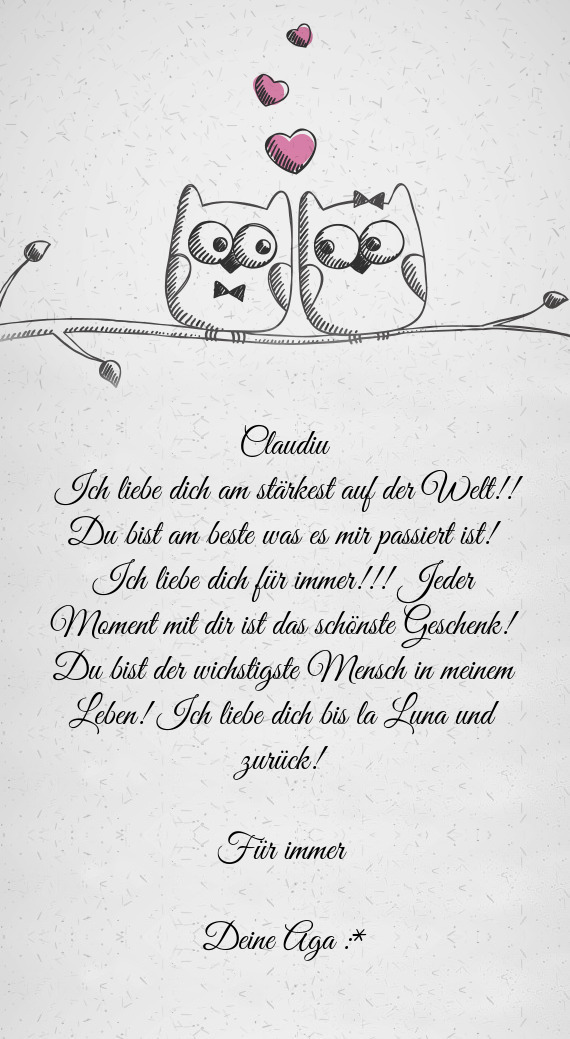 Claudiu
Ich liebe dich am stärkest auf der Welt!!
Du bist am beste was es mir passiert ist!
Ich liebe dich für immer!!! Jeder
Moment mit dir ist das schönste Geschenk!
Du bist der wichstigste Mensch in meinem
Leben! Ich liebe dich bis la Luna und
zurück!
Für immer
Deine Aga :*